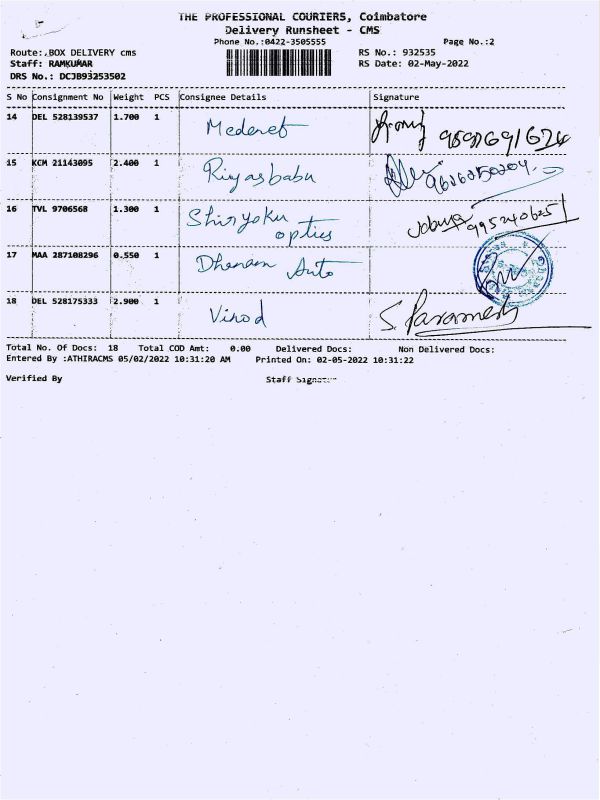 THE PROFESSIONAL COURIERS, Coimbatore
Delivery Runsheet - CMS
Phone No.:0422-3505555 Page No.:2
Route: BOX DELIVERY cms RS No.: 932535
Staff: RAMKUMAR RS Date: 02-May-2022
DRS No.: DCJB93253502
S No Consignment No Weight PCS Consignee Details Signature
14 DEL 528139537 1.700 1 Mederet
15 KCM 21143095 2.400 1 Riyasbabu
16 TVL 9706568 1.300 1 Shinryoku
optics
17 MAA 287108296 0.550 1 Dhanam Auto
18 DEL 528175333 2.900 1 Vinod S. Paramesh
Total No. Of Docs: 18 Total COD Amt: 0.00 Delivered Docs: Non Delivered Docs:
Entered By :ATHIRACMS 05/02/2022 10:31:20 AM Printed On: 02-05-2022 10:31:22
Verified By Staff Signatur